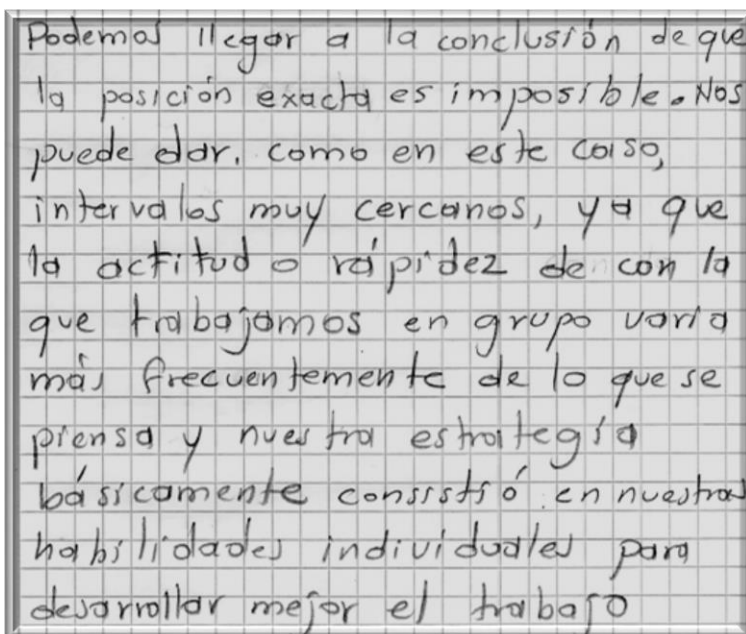 Podemos llegar a la conclusión de que
la posición exacta es imposible. Nos
puede dar, como en este caso,
intervalos muy cercanos, ya que
la actitud o rápidez de con la
que trabajamos en grupo varia
más frecuentemente de lo que se
piensa y nuestra estrategía
básicamente consistió en nuestras
habilidades individuales para
desarrollar mejor el trabajo